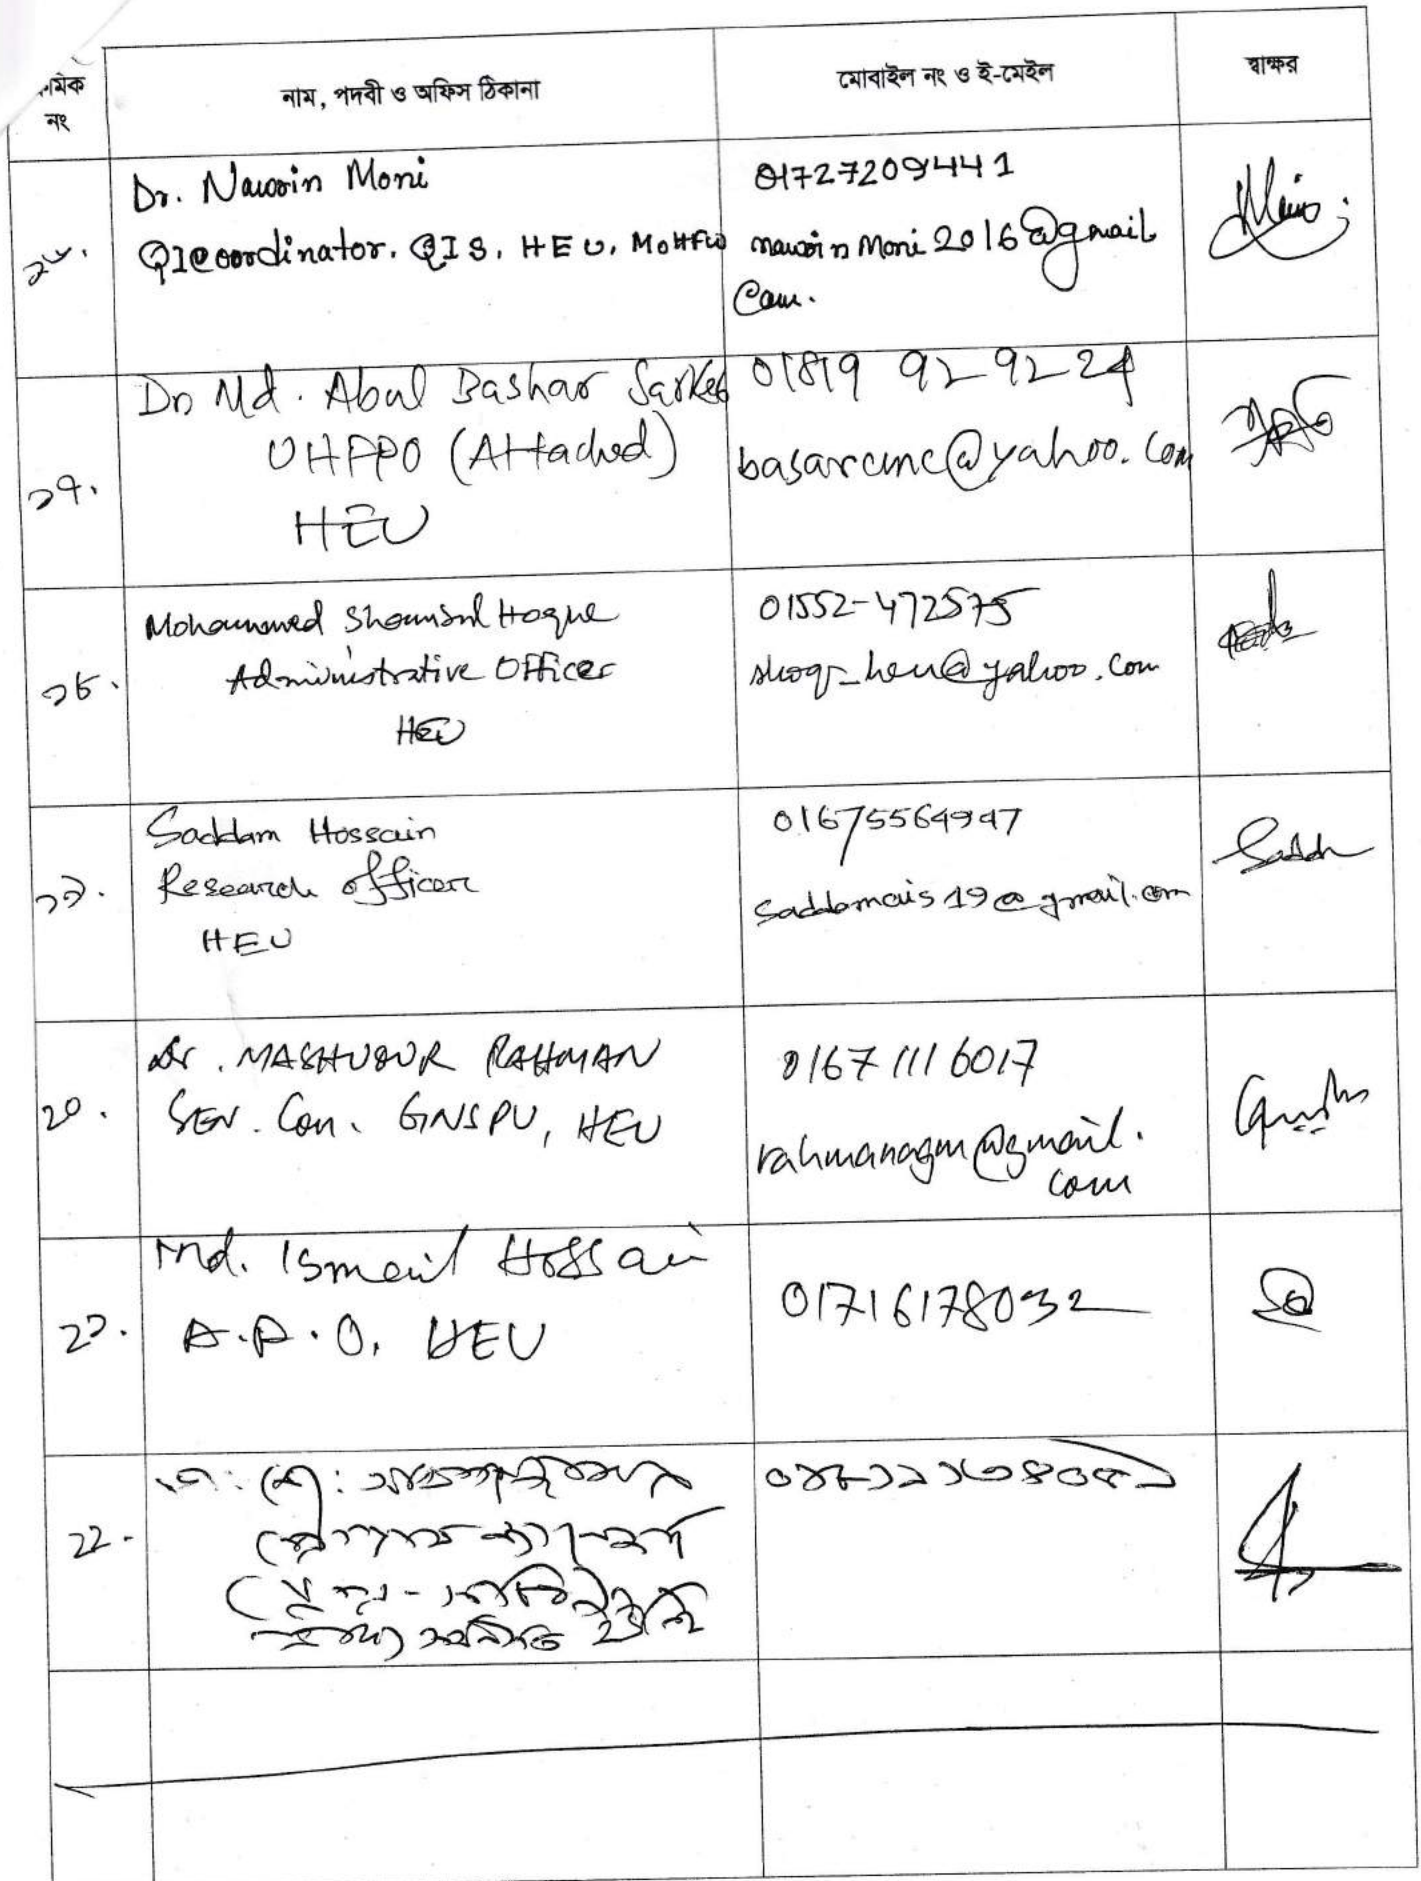 ক্রমিক নং
নাম, পদবী ও অফিস ঠিকানা
মোবাইল নং ও ই-মেইল
স্বাক্ষর
১৬.
Dr. Nawrin Moni
QI Coordinator, QIS, HEU, MOHFW
01727209441
nawrin Moni 2016@gmail
Com.
১৭.
Dr Md. Abul Bashar Sarker
UHFPO (Attached)
HEU
01819 929224
basarcmc@yahoo.com
১৮.
Mohammed Shamsul Hoque
Administrative Officer
HEU
01552-472575
shoq_heu@yahoo.com
১৯.
Saddam Hossain
Research officer
HEU
01675564947
saddamais19@gmail.com
২০.
Dr. MASHUQUR RAHMAN
SEN. Con. GNSPU, HEU
01671116017
rahmanagm@gmail.
com
২১.
Md. Ismail Hossain
A.P.O, HEU
01716178032
২২.